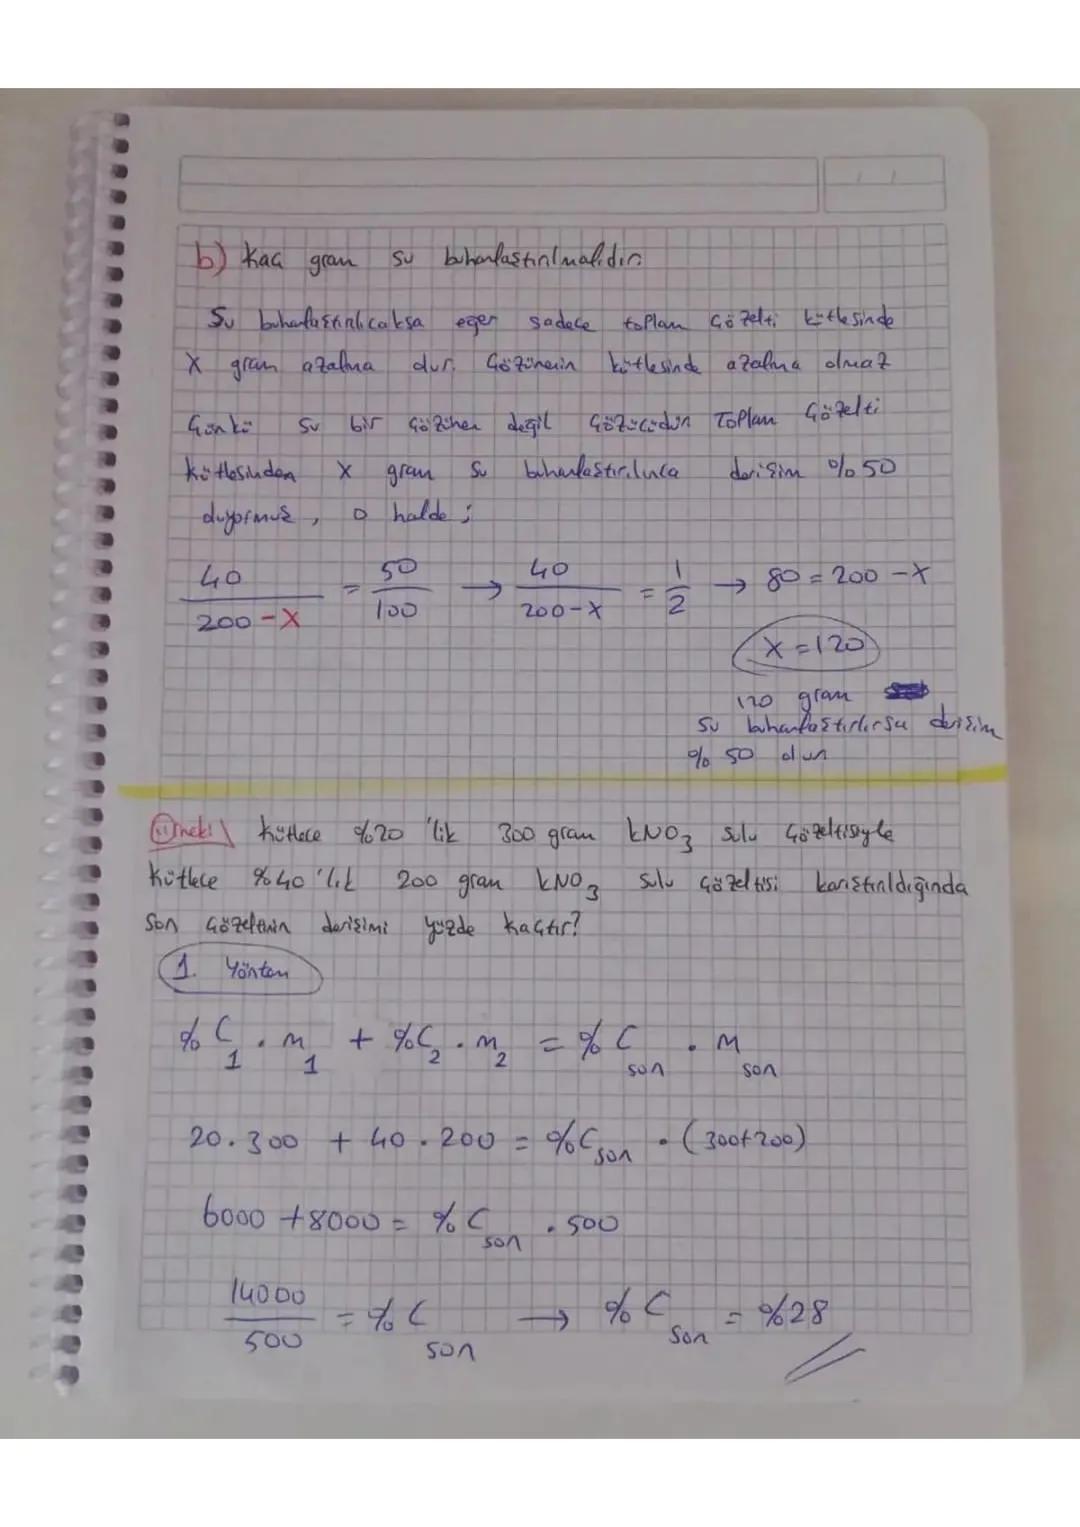 b) Kaç gram su buharlaştırılmalıdır
Su buharlaştırılıcaksa eger sadece toplam çözelti kütlesinde
X gram azalma olur. Çözünenin kütlesinde azalma olmaz
Çünkü su bir çözünen değil çözücüdür Toplam çözelti
kütlesinden X gram su buharlaştırılınca derişim %50
oluyormuş, o halde;
40 / 200-X = 50 / 100 → 40 / 200-X = 1 / 2 → 80 = 200 - X
X = 120
120 gram
su buharlaştırlırsa derişim
% 50 olur
Örnek: Kütlece %20 'lik 300 gram KNO3 sulu çözeltisiyle
Kütlece %40 'lık 200 gram KNO3 sulu çözeltisi karıştırıldığında
Son çözeltinin derişimi yüzde kaçtır?
1. Yöntem
% C1 . m1 + % C2 . m2 = % Cson . mson
20.300 + 40.200 = % Cson . (300+200)
6000 + 8000 = % Cson . 500
14000 / 500 = % Cson → % Cson = %28